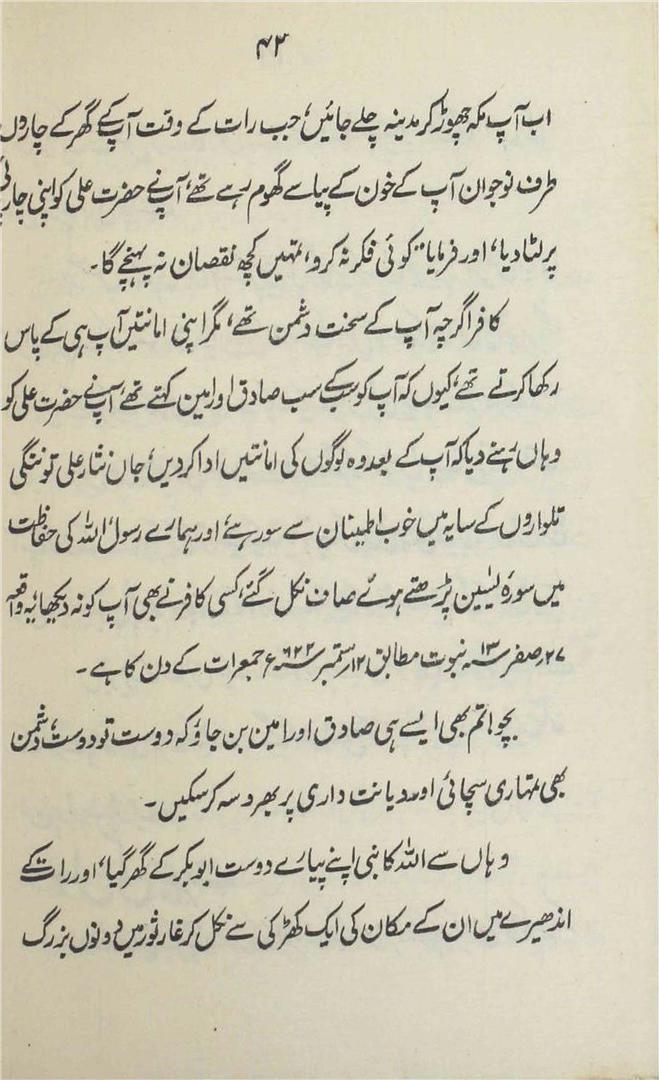 ۴۳
اب آپ مکہ چھوڑ کر مدینہ چلے جائیں، جب رات کے وقت آپ کے گھر کے چاروں
طرف نوجوان آپ کے خون کے پیاسے گھوم رہے تھے، آپ نے حضرت علی کو اپنی چارپائی
پر لٹا دیا، اور فرمایا "کوئی فکر نہ کرو، تمہیں کچھ نقصان نہ پہنچے گا۔
کافر اگرچہ آپ کے سخت دشمن تھے، مگر اپنی امانتیں آپ ہی کے پاس
رکھا کرتے تھے، کیوں کہ آپ کو سب کے سب صادق اور امین کہتے تھے، آپ نے حضرت علی کو
وہاں رہنے دیا کہ آپ کے بعد وہ لوگوں کی امانتیں ادا کر دیں، جان نثار علی تو ننگی
تلواروں کے سایہ میں خوب اطمینان سے سو رہے، اور ہمارے رسول اللہ کی حفاظت
میں سورۂ یٰسین پڑھتے ہوئے صاف نکل گئے، کسی کافر نے بھی آپ کو نہ دیکھا، یہ واقعہ
۲۷؍صفر ۱۳؁ نبوت مطابق ۱۲؍ستمبر ۶۲۲؁ء جمعرات کے دن کا ہے۔
بچو! تم بھی ایسے ہی صادق اور امین بن جاؤ کہ دوست تو دوست، دشمن
بھی تمہاری سچائی اور دیانت داری پر بھروسہ کر سکیں۔
وہاں سے اللہ کا نبی اپنے پیارے دوست ابوبکر کے گھر گیا، اور رات کے
اندھیرے میں ان کے مکان کی ایک کھڑکی سے نکل کر غار ثور میں دونوں بزرگ